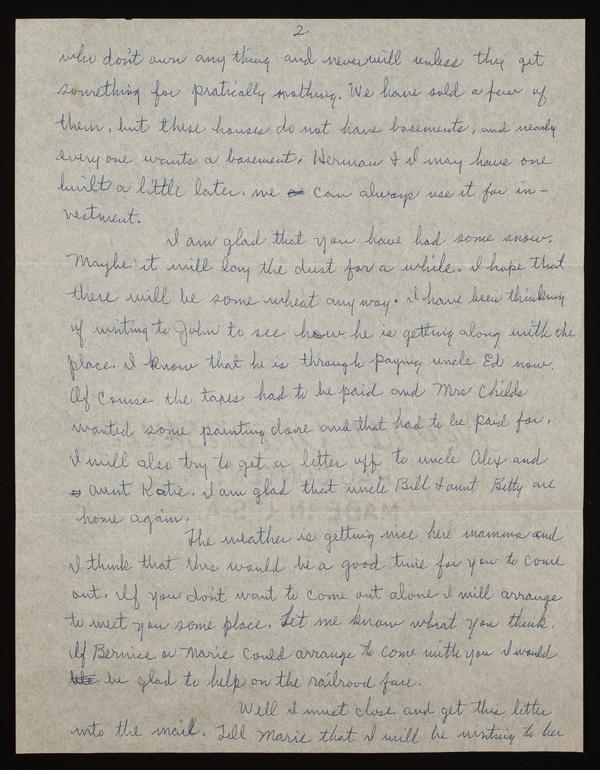 2.
who don't own any thing and never will unless they get
something for pratically nothing. We have sold a few of
them, but these houses do not have basements, and nearly
every one wants a basement. Herman & I may have one
built a little later. we can always use it for in-
vestment.
I am glad that you have had some snow.
Maybe it will lay the dust for a while. I hope that
there will be some wheat any way. I have been thinking
of writing to John to see how he is getting along with the
place. I know that he is through paying uncle Ed now.
Of course the taxes had to be paid and Mrs Childs
wanted some painting done and that had to be paid for.
I will also try to get a letter off to uncle Alex and
aunt Katie. I am glad that uncle Bill & aunt Betty are
home again.
The weather is getting nice here mamma and
I think that this would be a good time for you to come
out. If you don't want to come out alone I will arrange
to meet you some place. Let me know what you think.
If Bernice or Marie could arrange to come with you I would
be glad to help on the railroad fare.
Well I must close and get this letter
into the mail. Tell Marie that I will be writing to her
MADE IN U.S.A.